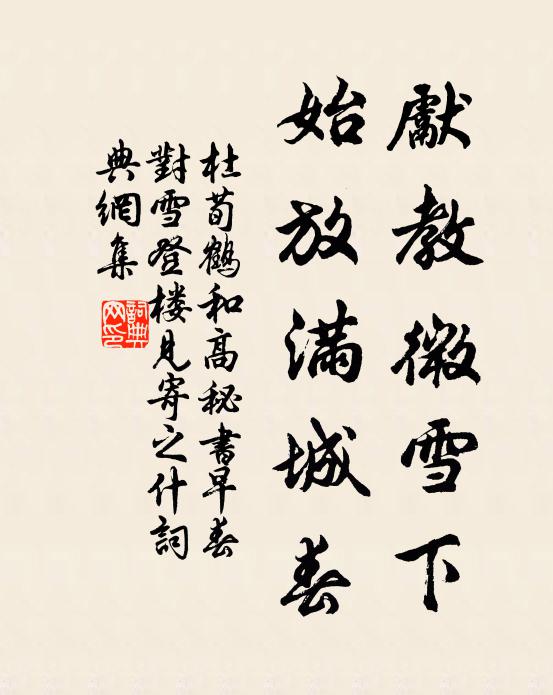 獻教微雪下
始放滿城春
杜荀鶴和高秘書早春
對雪登楼見寄之什詞
典網集
詞典
网印